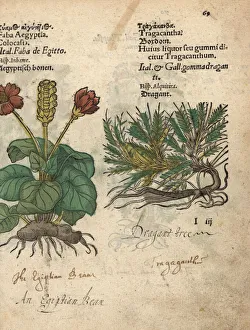 69
Faba Aegyptia,
Colocasia.
Ital. Faba de Egitto.
Aegyptisch bonen.
Tragacantha:
Huius liquor seu gummi di
citur Tragacanthum.
Ital. & Gall. gommadragan
Dragant.
I iij
Dragant tree
Tragaganth
The Egiptian Bean
An Egiptian Bean